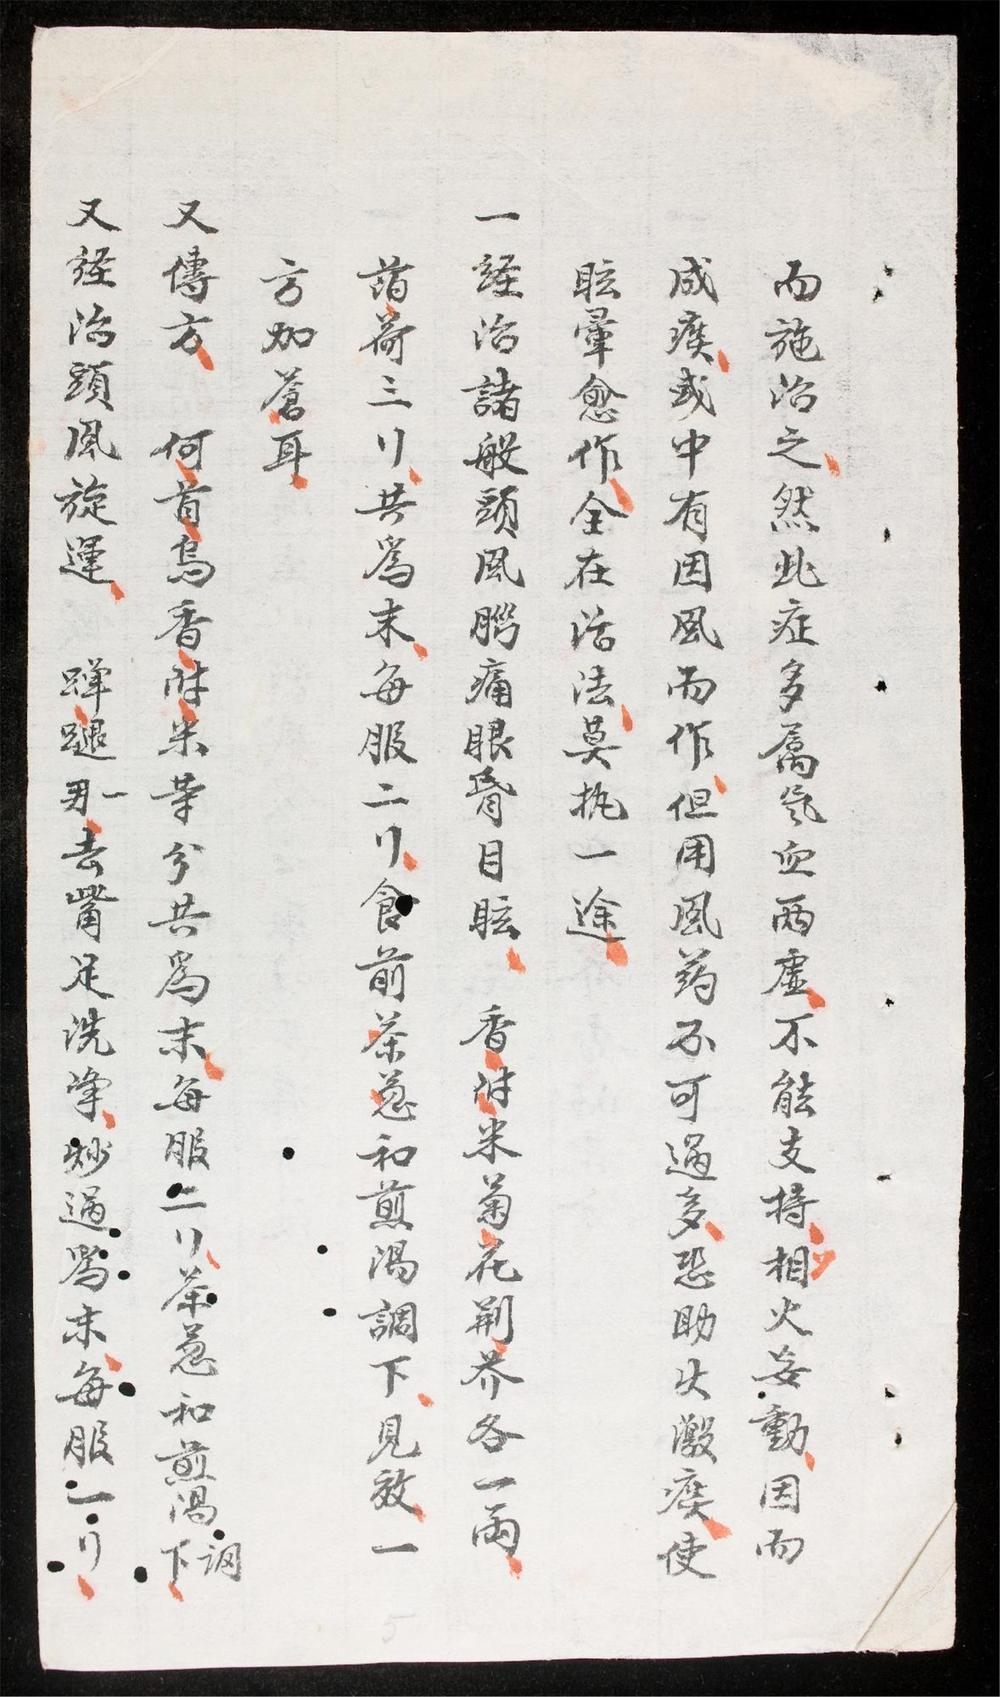 而施治之然此症多属氣血兩虛不能支持相火妄動因而
成痰或中有因風而作但用風药不可過多恐助火激痰使
眩暈愈作全在活法莫执一途
一経治諸般頭風腦痛眼昏目眩 香附米菊花荆芥各一兩
薄荷三刂共爲末每服二刂食前茶葱和煎湯調下見效一
方加蒼耳
又傳方 何首烏香附米等分共爲末每服二刂茶葱和煎湯調下
又経治頭風旋運 蟬退一 去嘴足洗净炒過爲末每服一刂
5